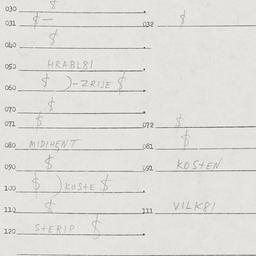 030 $
031 $ — 032 $
040 $
050 HRABL81
060 $ )-ZRIJE $
070 $
071 $ 072 $
080 MIDIHENT 081 $
090 $ 091 KOSTEN
100 $ ) KOSTE $
110 $ 111 VILK81
120 STERIP $